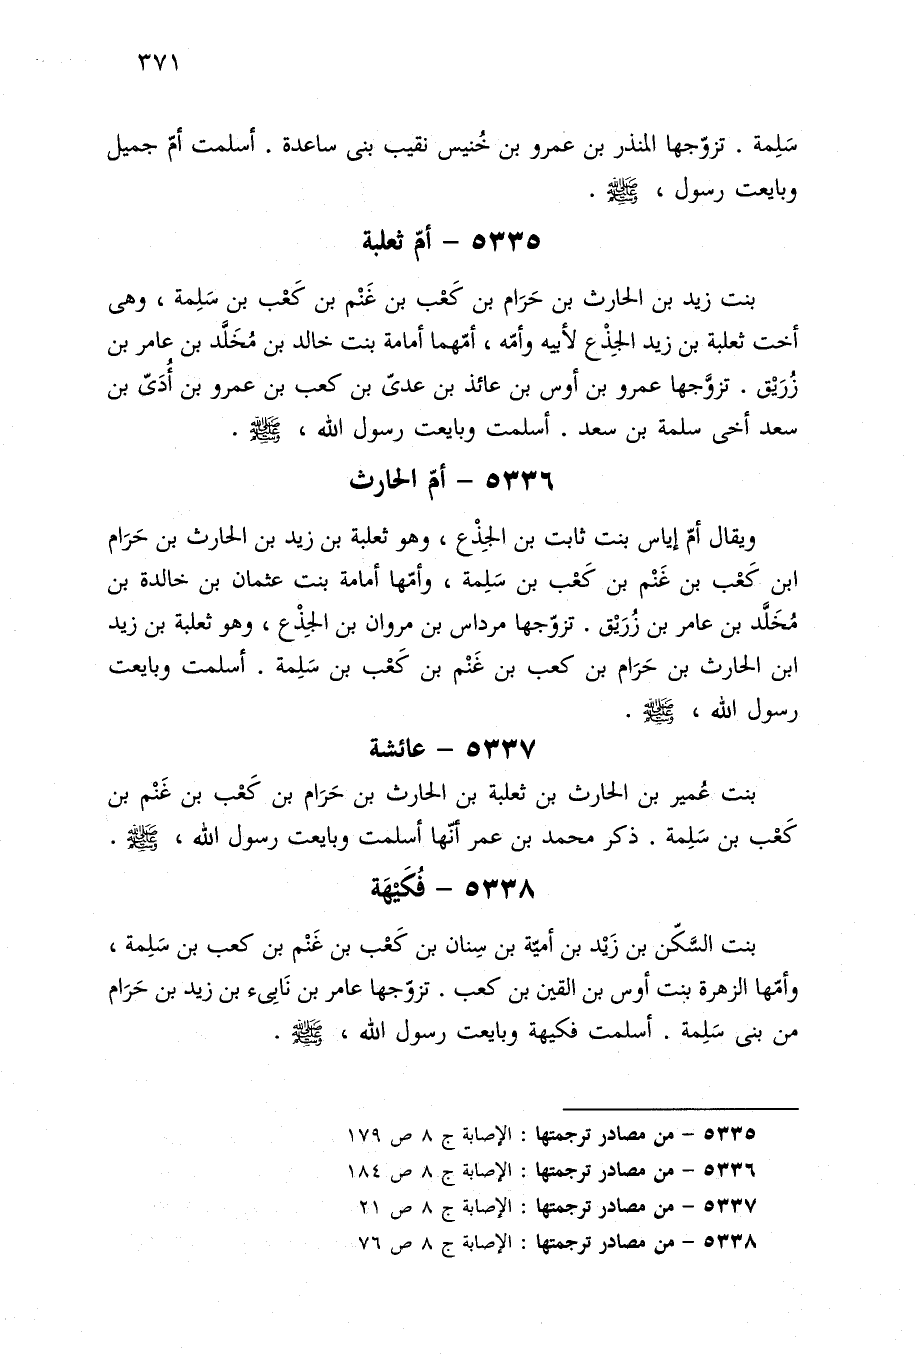 ٣٧١
سَلِمة . تزوّجها المنذر بن عمرو بن خُنيس نقيب بنى ساعدة . أسلمت أمّ جميل
وبايعت رسول ، ﷺ .
٥٣٣٥ – أمّ ثعلبة
بنت زيد بن الحارث بن حَرَام بن كَعْب بن غَنْم بن كَعْب بن سَلِمة ، وهى
أخت ثعلبة بن زيد الجِذْع لأبيه وأمّه ، أمّهما أمامة بنت خالد بن مُخَلَّد بن عامر بن
زُرَيْق . تزوَّجها عمرو بن أوس بن عائذ بن عدىّ بن كعب بن عمرو بن أُدَىّ بن
سعد أخى سلمة بن سعد . أسلمت وبايعت رسول الله ، ﷺ .
٥٣٣٦ – أمّ الحارث
ويقال أمّ إياس بنت ثابت بن الجِذْع ، وهو ثعلبة بن زيد بن الحارث بن حَرَام
ابن كَعْب بن غَنْم بن كَعْب بن سَلِمة ، وأمّها أمامة بنت عثمان بن خالدة بن
مُخَلَّد بن عامر بن زُرَيْق . تزوّجها مرداس بن مروان بن الجِذْع ، وهو ثعلبة بن زيد
ابن الحارث بن حَرَام بن كعب بن غَنْم بن كَعْب بن سَلِمة . أسلمت وبايعت
رسول الله ، ﷺ .
٥٣٣٧ – عائشة
بنت عُمير بن الحارث بن ثعلبة بن الحارث بن حَرَام بن كَعْب بن غَنْم بن
كَعْب بن سَلِمة . ذكر محمد بن عمر أنّها أسلمت وبايعت رسول الله ، ﷺ .
٥٣٣٨ – فُكَيْهَة
بنت السَّكَن بن زَيْد بن أميّة بن سِنان بن كَعْب بن غَنْم بن كعب بن سَلِمة ،
وأمّها الزهرة بنت أوس بن القين بن كعب . تزوّجها عامر بن نَابِىء بن زيد بن حَرَام
من بنى سَلِمة . أسلمت فكيهة وبايعت رسول الله ، ﷺ .
٥٣٣٥ – من مصادر ترجمتها : الإصابة ج ٨ ص ١٧٩
٥٣٣٦ – من مصادر ترجمتها : الإصابة ج ٨ ص ١٨٤
٥٣٣٧ – من مصادر ترجمتها : الإصابة ج ٨ ص ٢١
٥٣٣٨ – من مصادر ترجمتها : الإصابة ج ٨ ص ٧٦